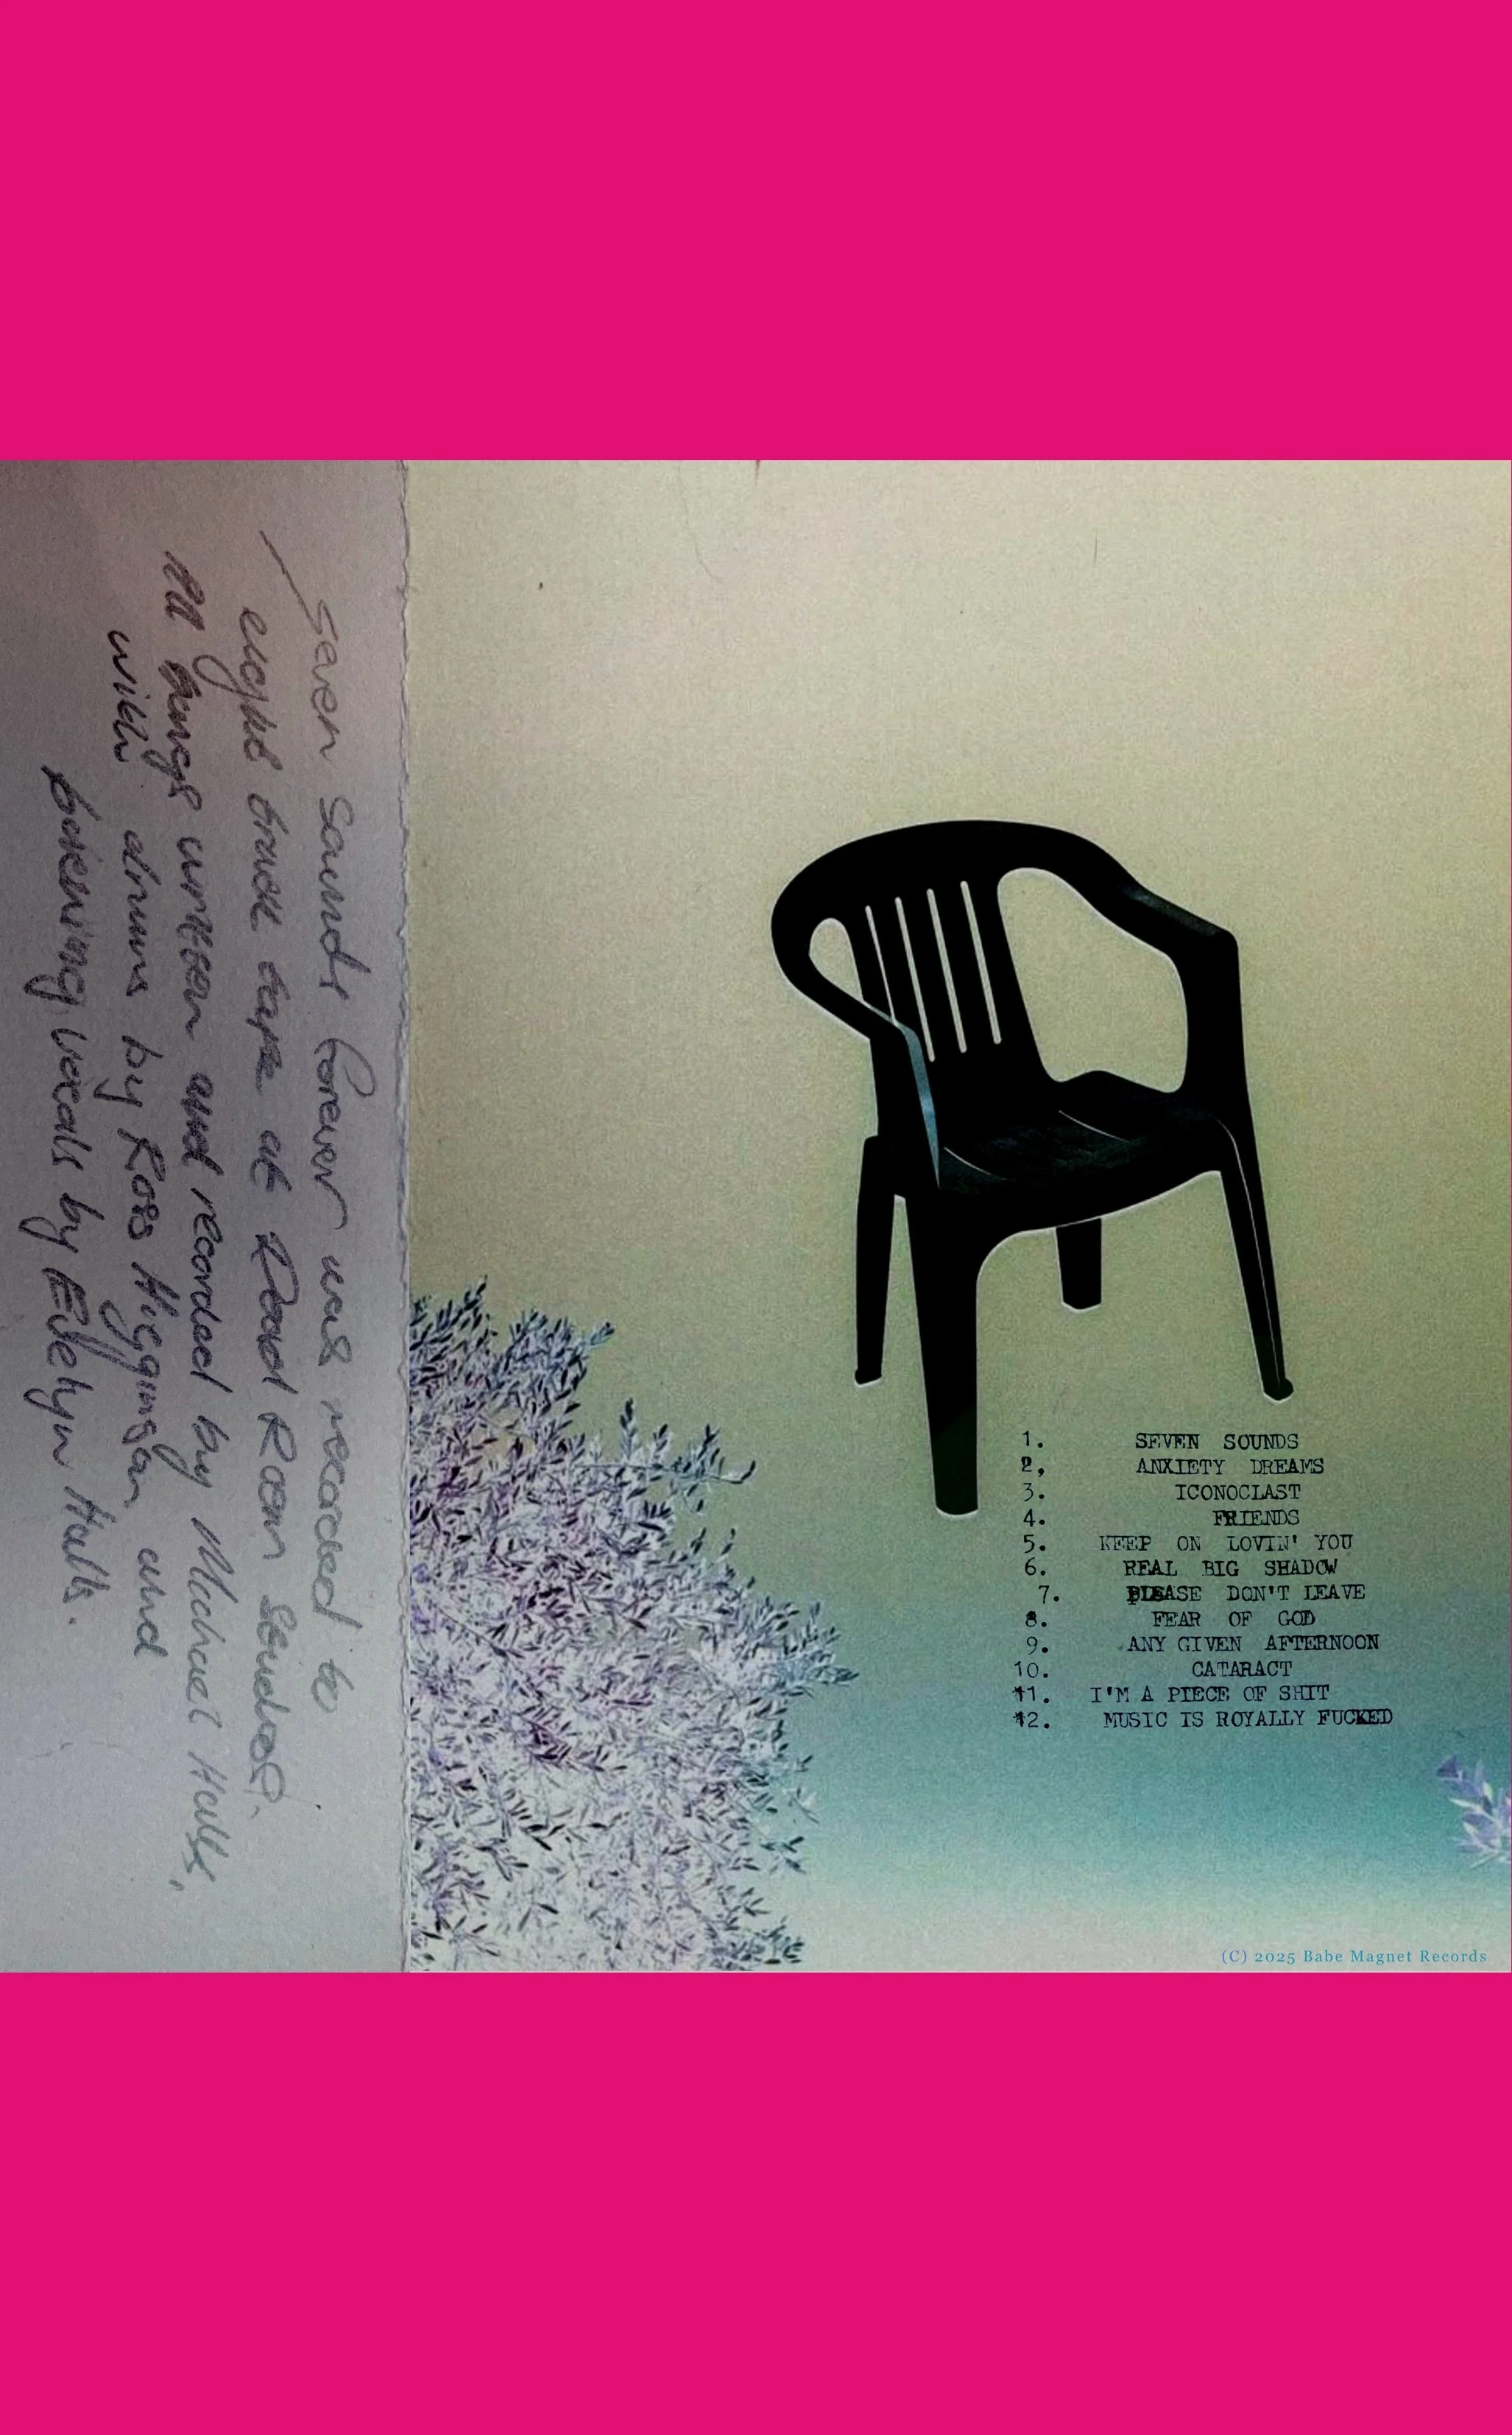 Seven Sounds Forever was recorded to
eight track tape at Dead Room Sundeal.
All songs written and recorded by Michael Halls,
with drums by Ross Higginson and
backing vocals by Evelyn Halls.
1. SEVEN SOUNDS
2, ANXIETY DREAMS
3. ICONOCLAST
4. FRIENDS
5. KEEP ON LOVIN' YOU
6. REAL BIG SHADOW
7. PLEASE DON'T LEAVE
8. FEAR OF GOD
9. ANY GIVEN AFTERNOON
10. CATARACT
11. I'M A PIECE OF SHIT
12. MUSIC IS ROYALLY FUCKED
(C) 2025 Babe Magnet Records